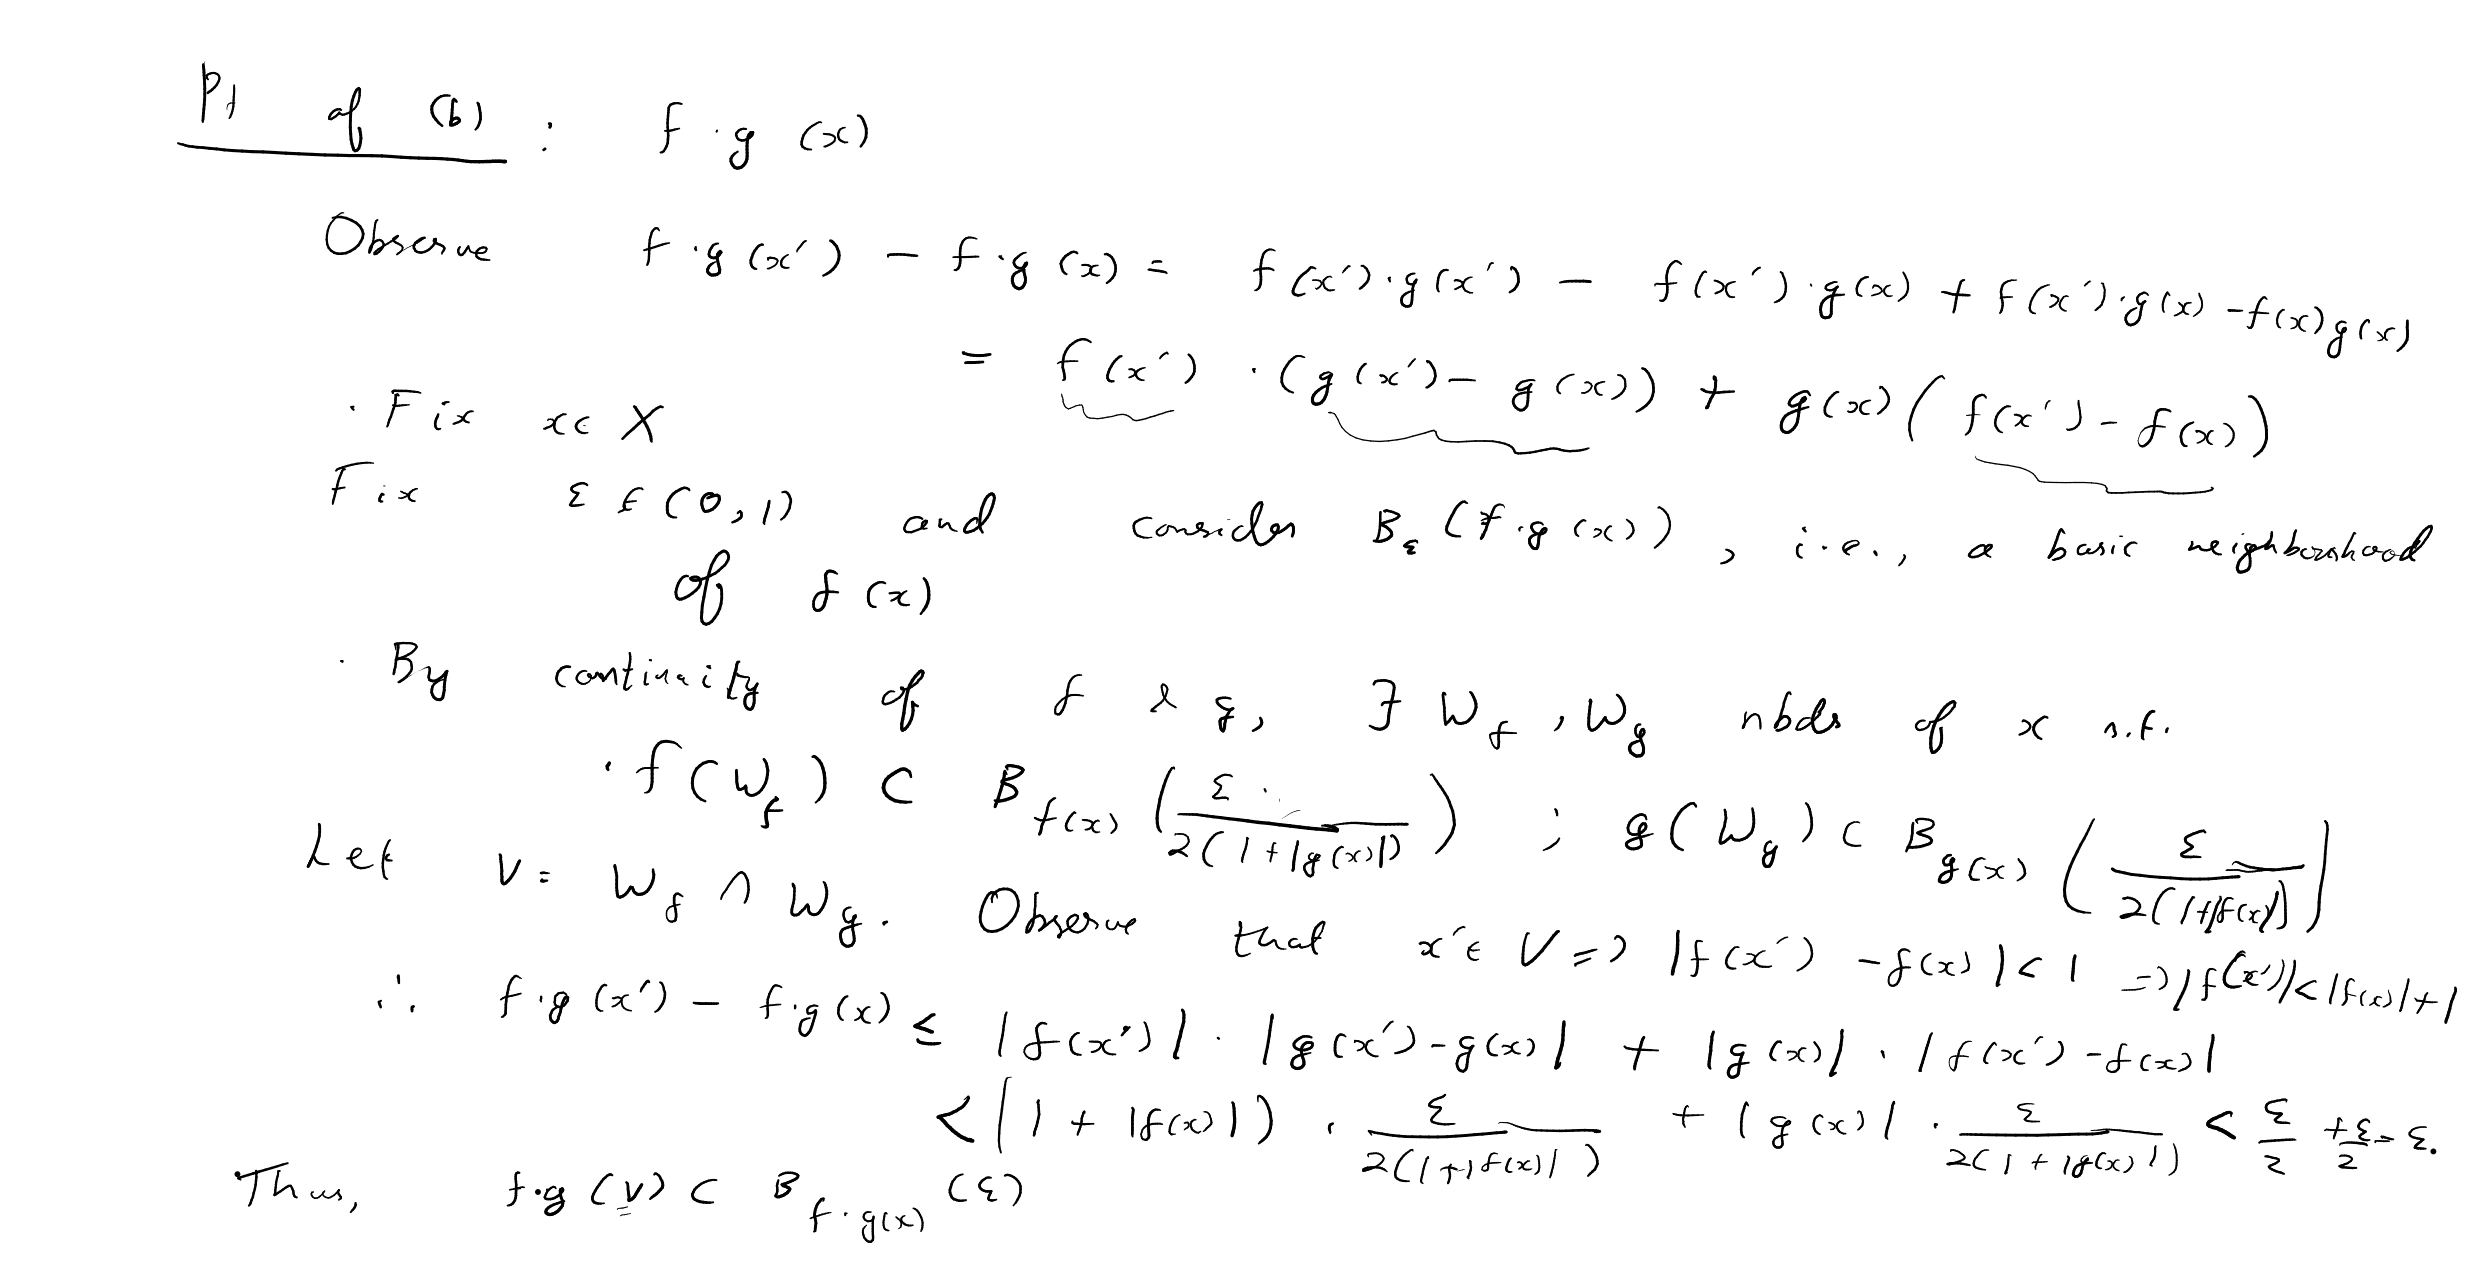 Pf of (b) : f·g (x)
Observe f·g (x') - f·g (x) = f(x')·g(x') - f(x')·g(x) + f(x')·g(x) - f(x)g(x)
= f(x') · (g(x') - g(x)) + g(x) ( f(x') - f(x) )
· Fix x ∈ X
Fix ε ∈ (0,1) and consider B_ε (f·g (x)) , i.e., a basic neighbourhood
of f(x)
· By continuity of f & g, ∃ W_f , W_g nbds of x s.t.
· f(W_f) ⊂ B_{f(x)} ( ε / 2(1+|g(x)|) ) ; g(W_g) ⊂ B_{g(x)} ( ε / 2(1+|f(x)|) )
Let V = W_f ∩ W_g. Observe that x' ∈ V => |f(x') - f(x)| < 1 => |f(x')| < |f(x)|+1
∴ f·g (x') - f·g (x) ≤ |f(x')| · |g(x')-g(x)| + |g(x)| · |f(x')-f(x)|
< (1 + |f(x)|) · ε / 2(1+|f(x)|) + |g(x)| · ε / 2(1+|g(x)|) < ε/2 + ε/2 = ε.
Thus, f·g (V) ⊂ B_{f·g(x)} (ε)